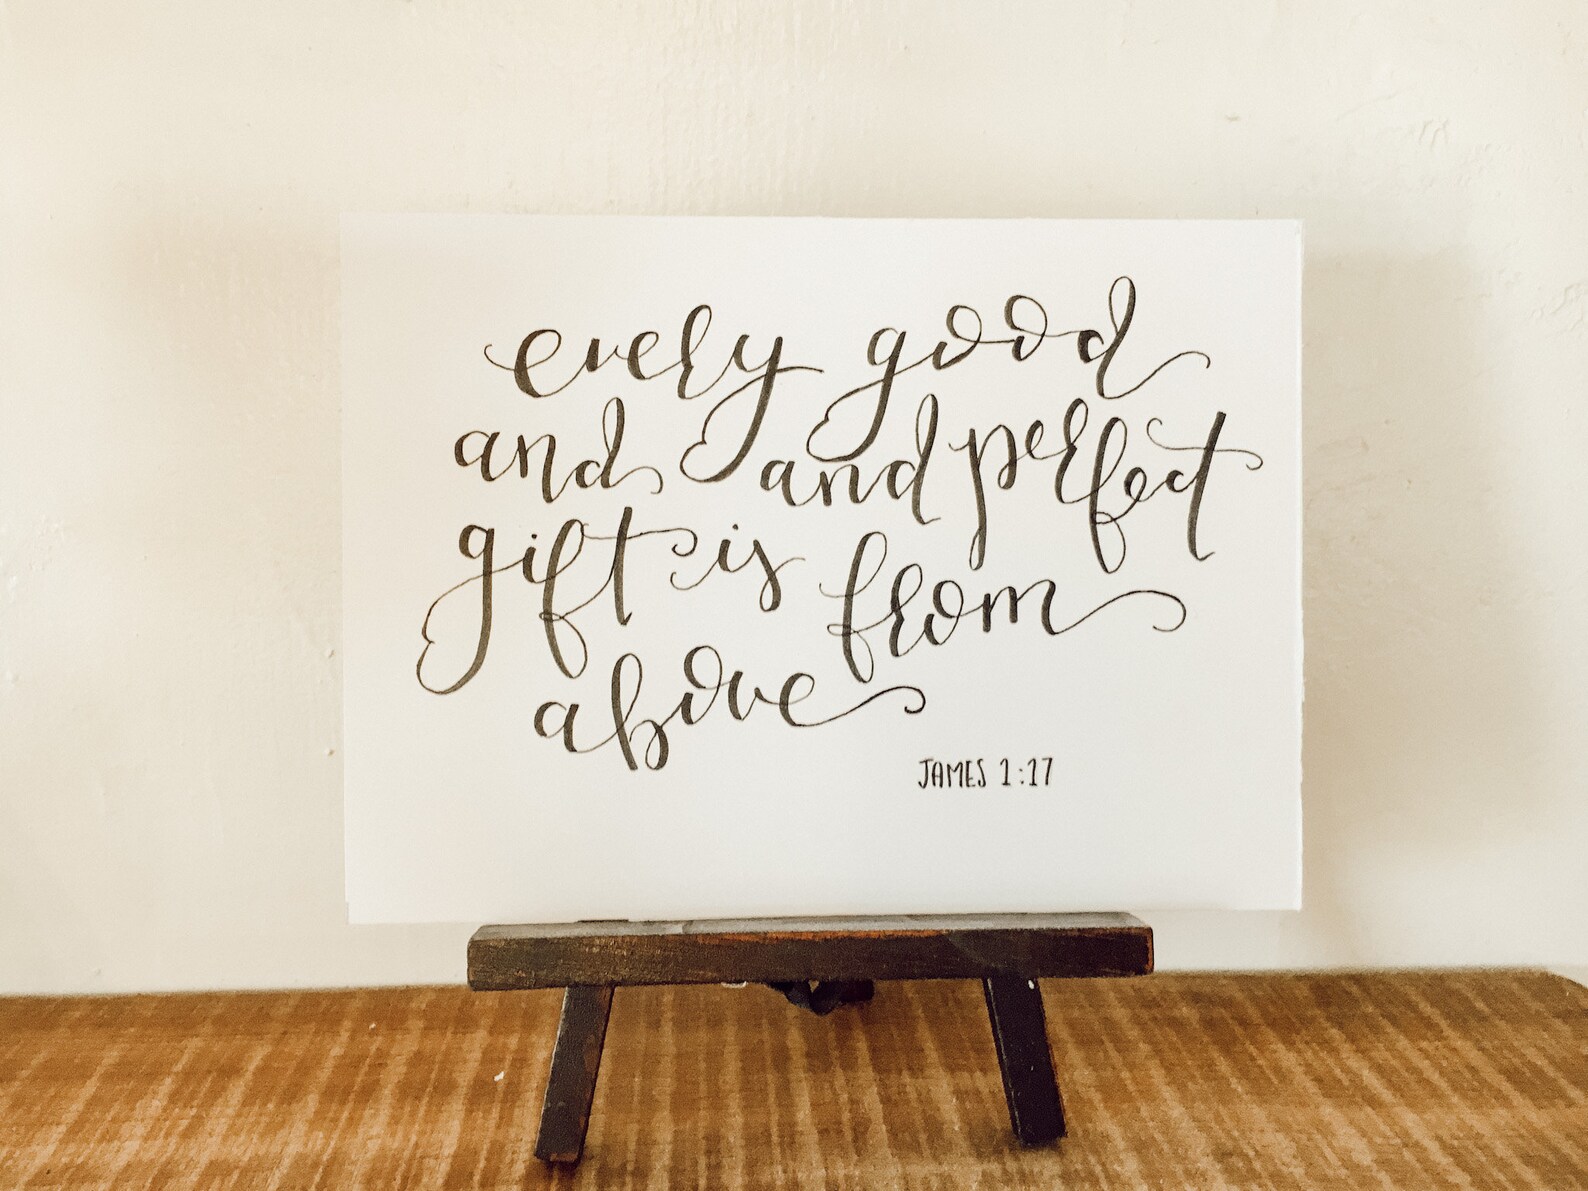 every good
and and perfect
gift is from
above
JAMES 1:17